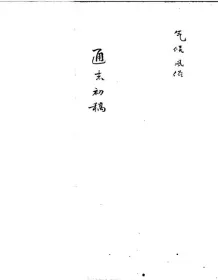 气候风俗
通志初稿